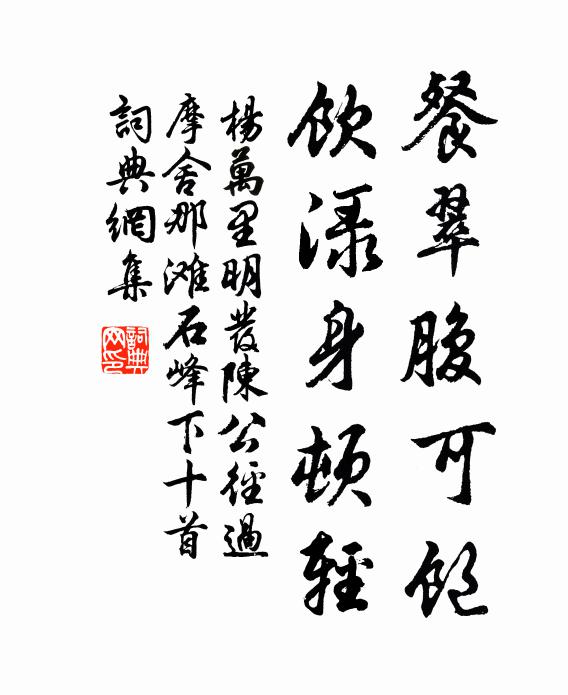 餐翠腹可飽
飲渌身頓輕
楊萬里明發陳公徑過
摩舍那滩石峰下十首
詞典網集
詞典网印